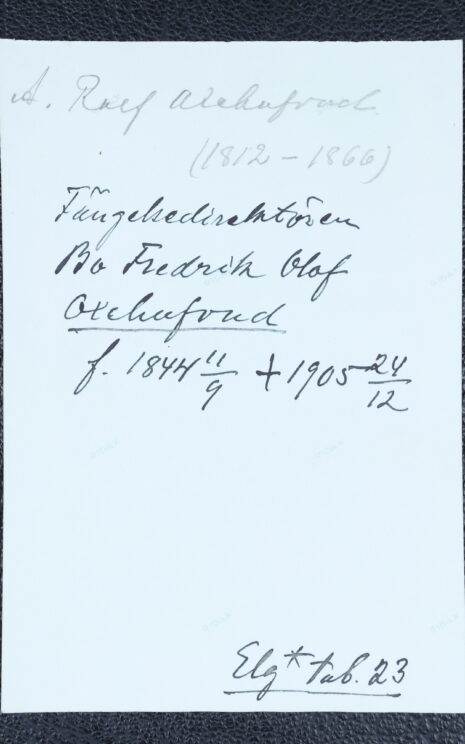 A. Rolf Oxehufvud
(1812 - 1866)
Fängelsedirektören
Bo Fredrik Olof
Oxehufvud
f. 1844 11/9 + 1905 24/12
Elg* tab. 23